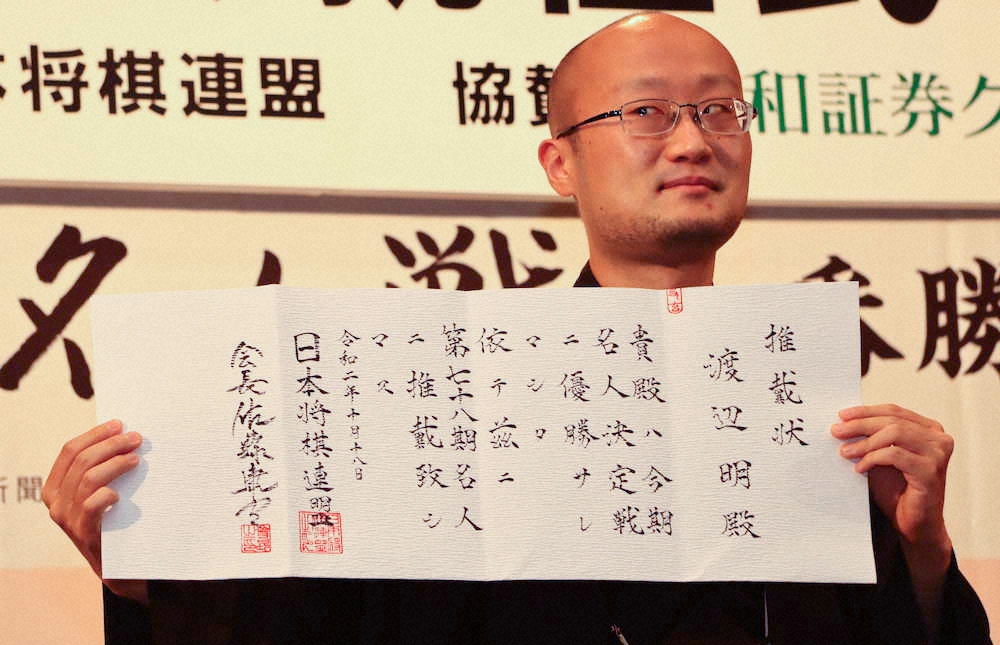 将棋連盟
協賛
和証券グ
名人戦
勝
新聞
推戴状
渡辺明殿
貴殿ハ今期
名人決定戦
ニ優勝サレ
マシタ
依テ茲ニ
第七十八期名人
ニ推戴致シ
マス
令和二年十月十八日
日本将棋連盟
会長佐藤康光